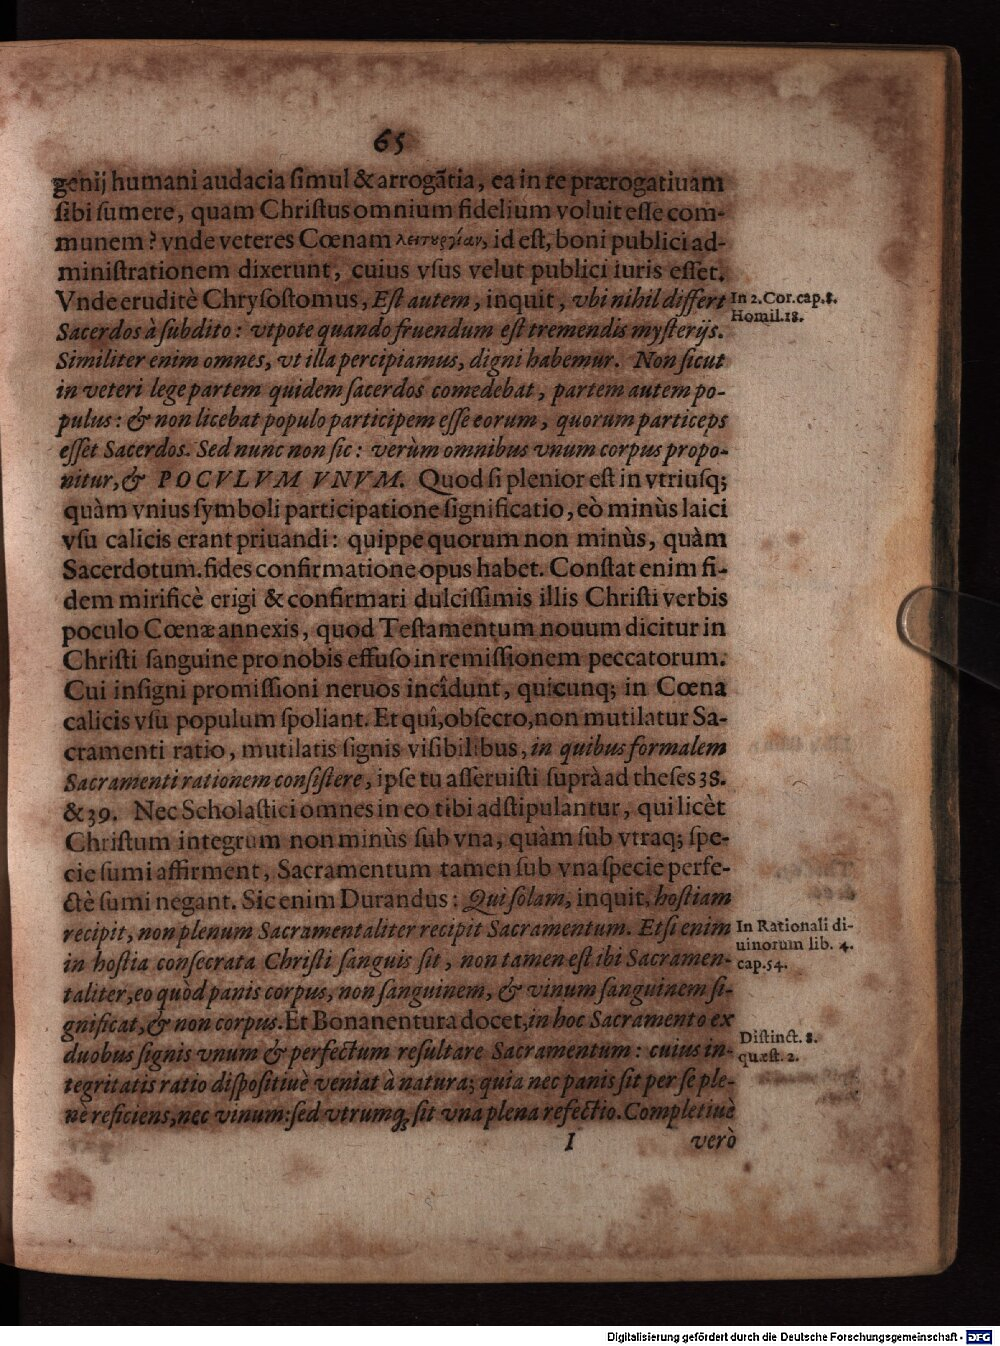 65
genij humani audacia ſimul & arrogãtia, ea in re prærogatiuam
ſibi ſumere, quam Chriſtus omnium fidelium voluit eſſe com-
munem? vnde veteres Cœnam λειτυργίαν, id eſt, boni publici ad-
miniſtrationem dixerunt, cuius vſus velut publici iuris eſſet.
Vnde eruditè Chryſoſtomus, Eſt autem, inquit, vbi nihil differt
In 2. Cor. cap. 8.
Homil. 18.
Sacerdos à ſubdito: vtpote quando fruendum eſt tremendis myſterijs.
Similiter enim omnes, vt illa percipiamus, digni habemur. Non ſicut
in veteri lege partem quidem ſacerdos comedebat, partem autem po-
pulus: & non licebat populo participem eſſe eorum, quorum particeps
eſſet Sacerdos. Sed nunc non ſic: verùm omnibus vnum corpus propo-
nitur, & POCVLVM VNVM. Quod ſi plenior eſt in vtriuſq;
quàm vnius ſymboli participatione ſignificatio, eò minùs laici
vſu calicis erant priuandi: quippe quorum non minùs, quàm
Sacerdotum. fides confirmatione opus habet. Conſtat enim fi-
dem mirificè erigi & confirmari dulciſſimis illis Chriſti verbis
poculo Cœnæ annexis, quod Teſtamentum nouum dicitur in
Chriſti ſanguine pro nobis effuſo in remiſſionem peccatorum.
Cui inſigni promiſſioni neruos incîdunt, quicunq; in Cœna
calicis vſu populum ſpoliant. Et quî, obſecro, non mutilatur Sa-
cramenti ratio, mutilatis ſignis viſibilibus, in quibus formalem
Sacramenti rationem conſiſtere, ipſe tu aſſeruiſti ſuprà ad theſes 38.
& 39. Nec Scholaſtici omnes in eo tibi adſtipulantur, qui licèt
Chriſtum integrum non minùs ſub vna, quàm ſub vtraq; ſpe-
cie ſumi affirment, Sacramentum tamen ſub vna ſpecie perfe-
ctè ſumi negant. Sic enim Durandus: Qui ſolam, inquit, hoſtiam
recipit, non plenum Sacramentaliter recipit Sacramentum. Etſi enim
In Rationali di-
uinorum lib. 4.
cap. 54.
in hoſtia conſecrata Chriſti ſanguis ſit, non tamen eſt ibi Sacramen-
taliter, eo quòd panis corpus, non ſanguinem, & vinum ſanguinem ſi-
gnificat, & non corpus. Et Bonanentura docet, in hoc Sacramento ex
Diſtinct. 8.
quæſt. 2.
duobus ſignis vnum & perfectum reſultare Sacramentum: cuius in-
tegritatis ratio diſpoſitiuè veniat à natura; quia nec panis ſit per ſe ple-
nè reficiens, nec vinum: ſed vtrumq; ſit vna plena refectio. Completiuè
I
verò
Digitalisierung gefördert durch die Deutsche Forschungsgemeinschaft - DFG